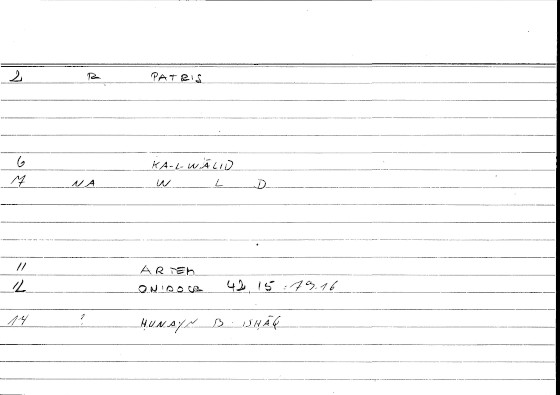 2 R PATRIS
6 KA-L-WĀLID
7 NA W L D
11 ARTEM
12 ONIROCR 42,15 : 79.16
14 ? HUNAYN B. ISHĀQ